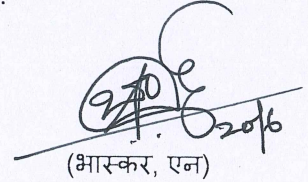 20/6
(भास्कर, एन)